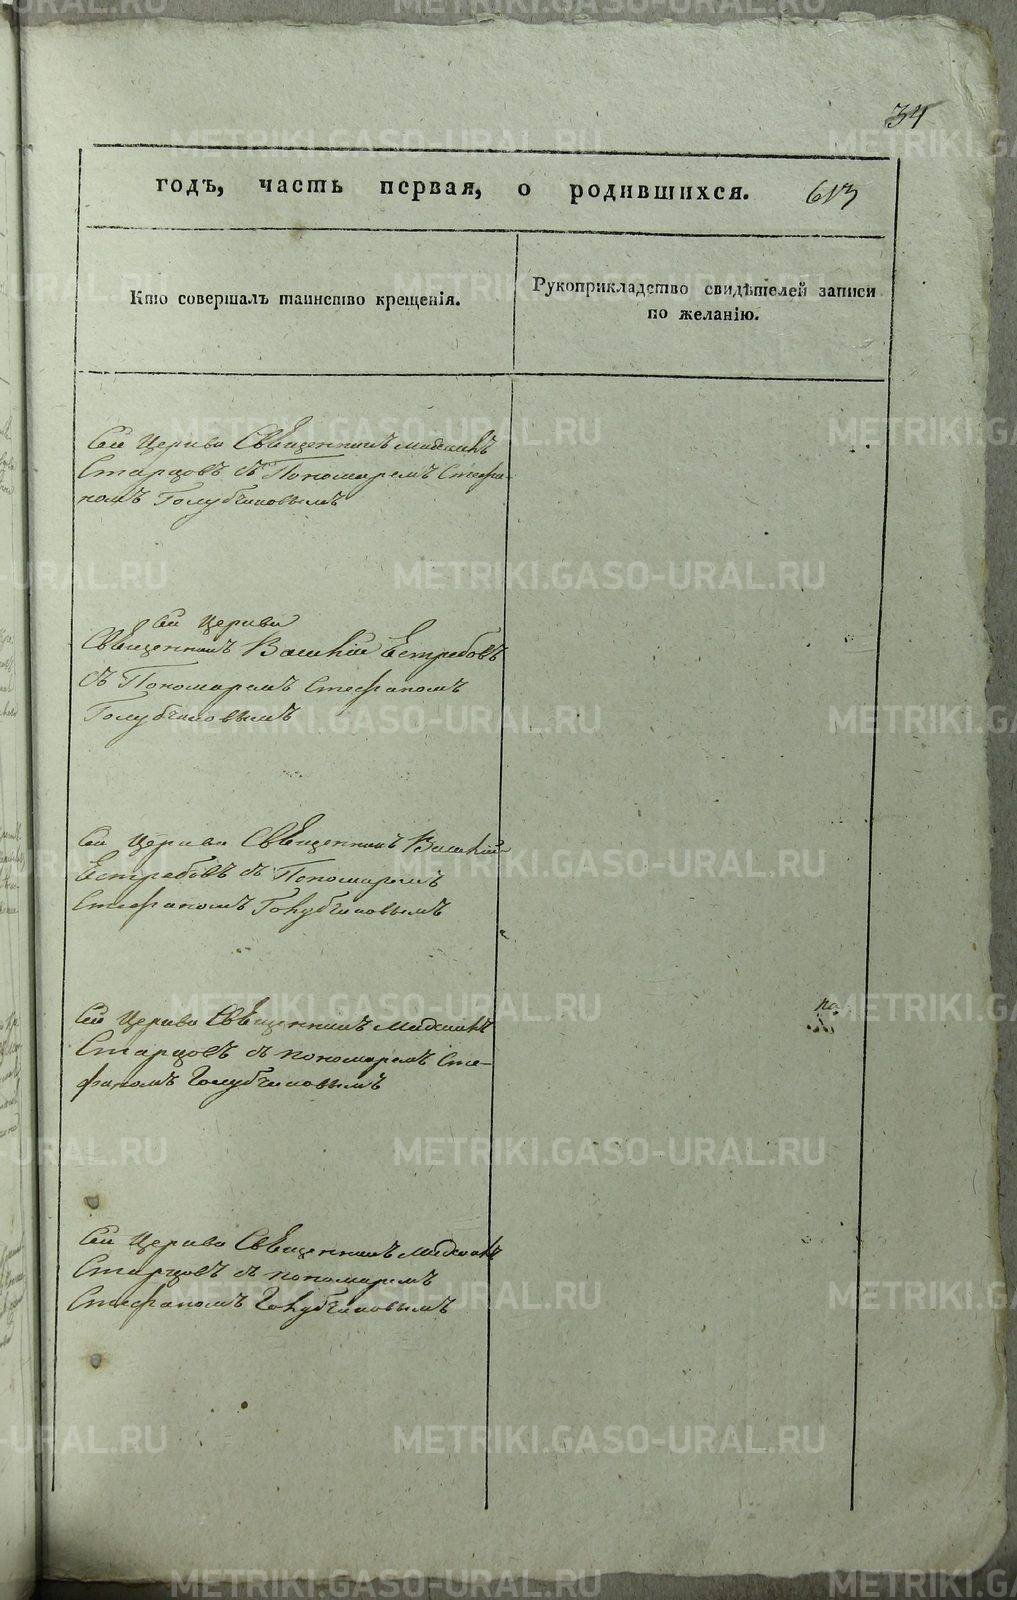 34
годъ, часть первая, о родившихся. 613
Кто совершалъ таинство крещенія.
Рукоприкладство свидѣтелей записи
по желанію.
Сей Церкви Священникъ
Старцовъ съ Пономаремъ Стефа-
номъ Голубчиковымъ
Сей Церкви
Священникъ Василій Ястребовъ
съ Пономаремъ Стефаномъ
Голубчиковымъ
Сей Церкви Священникъ Василій
Ястребовъ съ Пономаремъ
Стефаномъ Голубчиковымъ
Сей Церкви Священникъ
Старцовъ съ пономаремъ Сте-
фаномъ Голубчиковымъ
Сей Церкви Священникъ
Старцовъ съ пономаремъ
Стефаномъ Голубчиковымъ
METRIKI.GASO-URAL.RU